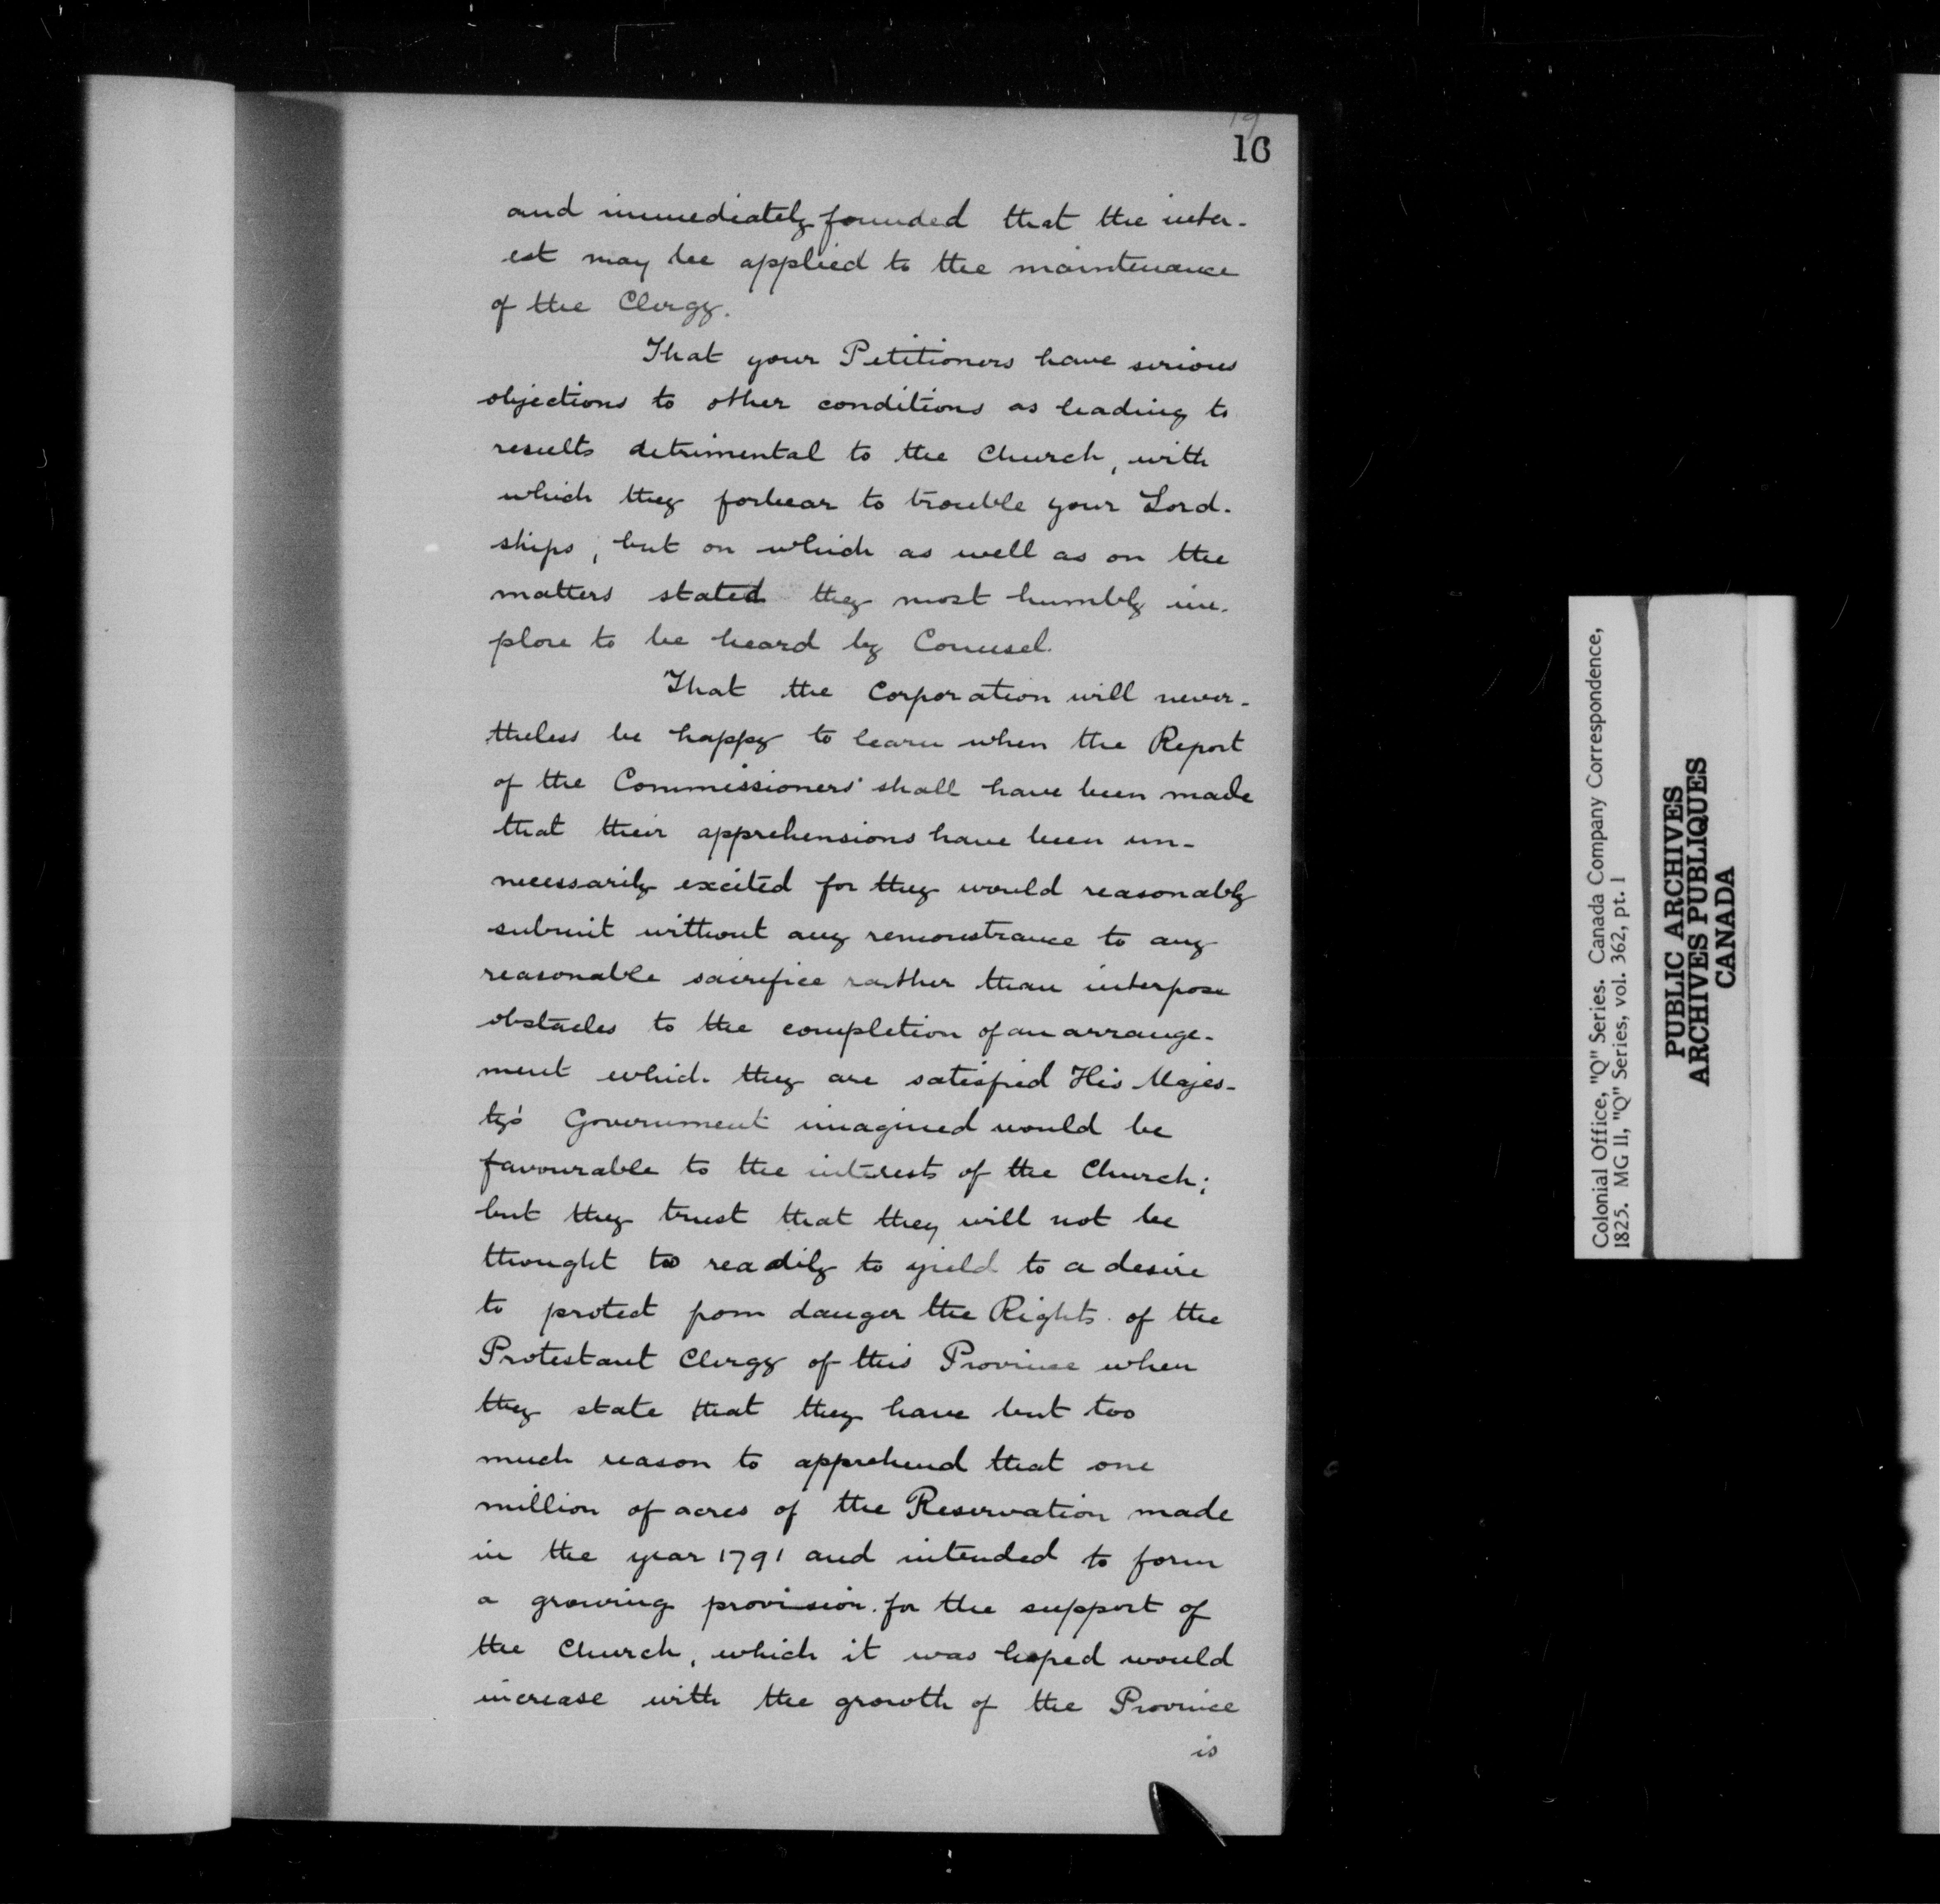 19
16
and immediately founded that the inter-
est may be applied to the maintenance
of the Clergy.
That your Petitioners have serious
objections to other conditions as leading to
results detrimental to the Church, with
which they forbear to trouble your Lord-
ships, but on which as well as on the
matters stated they most humbly im-
plore to be heard by Counsel.
That the Corporation will never-
theless be happy to learn when the Report
of the Commissioners' shall have been made
that their apprehensions have been un-
necessarily excited for they would reasonably
submit without any remonstrance to any
reasonable sacrifice rather than interpose
obstacles to the completion of an arrange-
ment which they are satisfied His Majes-
ty's Government imagined would be
favourable to the interests of the Church;
but they trust that they will not be
thought too readily to yield to a desire
to protect from danger the Rights of the
Protestant Clergy of this Province when
they state that they have but too
much reason to apprehend that one
million of acres of the Reservation made
in the year 1791 and intended to form
a growing provision for the support of
the Church, which it was hoped would
increase with the growth of the Province
is
Colonial Office, "Q" Series. Canada Company Correspondence,
1825. MG 11, "Q" Series, vol. 362, pt. 1
PUBLIC ARCHIVES
ARCHIVES PUBLIQUES
CANADA